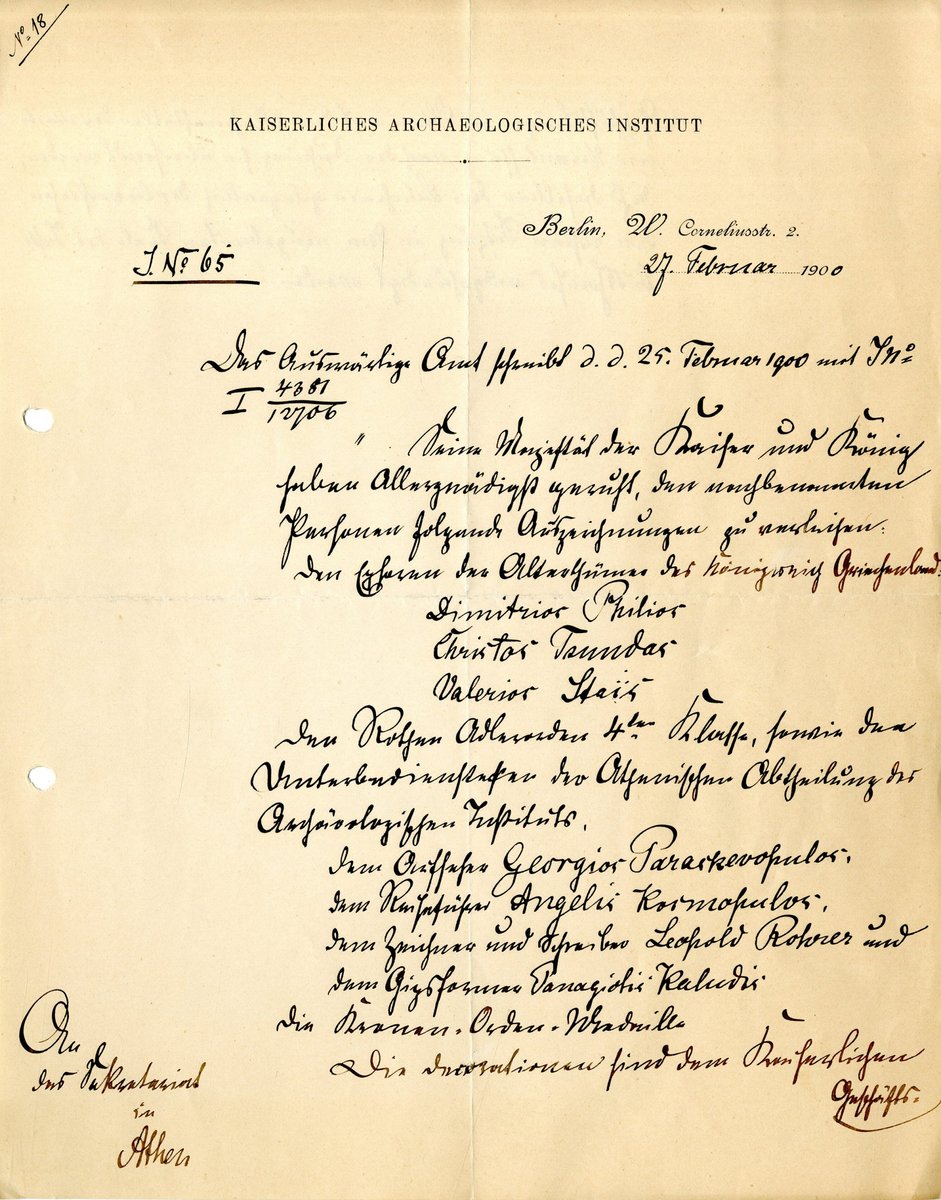 No 18
KAISERLICHES ARCHAEOLOGISCHES INSTITUT
Berlin, W. Corneliusstr. 2.
J. No 65
27. Februar 1900
Das Auswärtige Amt schreibt d. d. 25. Februar 1900 mit J No
I 4381
12706
" Seine Majestät der Kaiser und König
haben Allergnädigst geruht, den nachbenannten
Personen folgende Auszeichnungen zu verleihen:
Den Ephoren der Alterthümer des Königreich Griechenland:
Dimitrios Philios
Christos Tsundas
Valerios Staïs
den Rothen Adlerorden 4ter Klasse, sowie den
Unterbediensteten der Athenischen Abtheilung des
Archäologischen Instituts,
dem Aufseher Georgios Paraskevopulos,
dem Reiseführer Angelis Kosmopulos,
dem Zeichner und Schreiber Leopold Rohrer und
dem Gipsformer Panagiotis Kaludis
die Kronen-Orden-Medaille
Die Decorationen sind dem Kaiserlichen
Geschäfts-
An
das Sekretariat
in
Athen